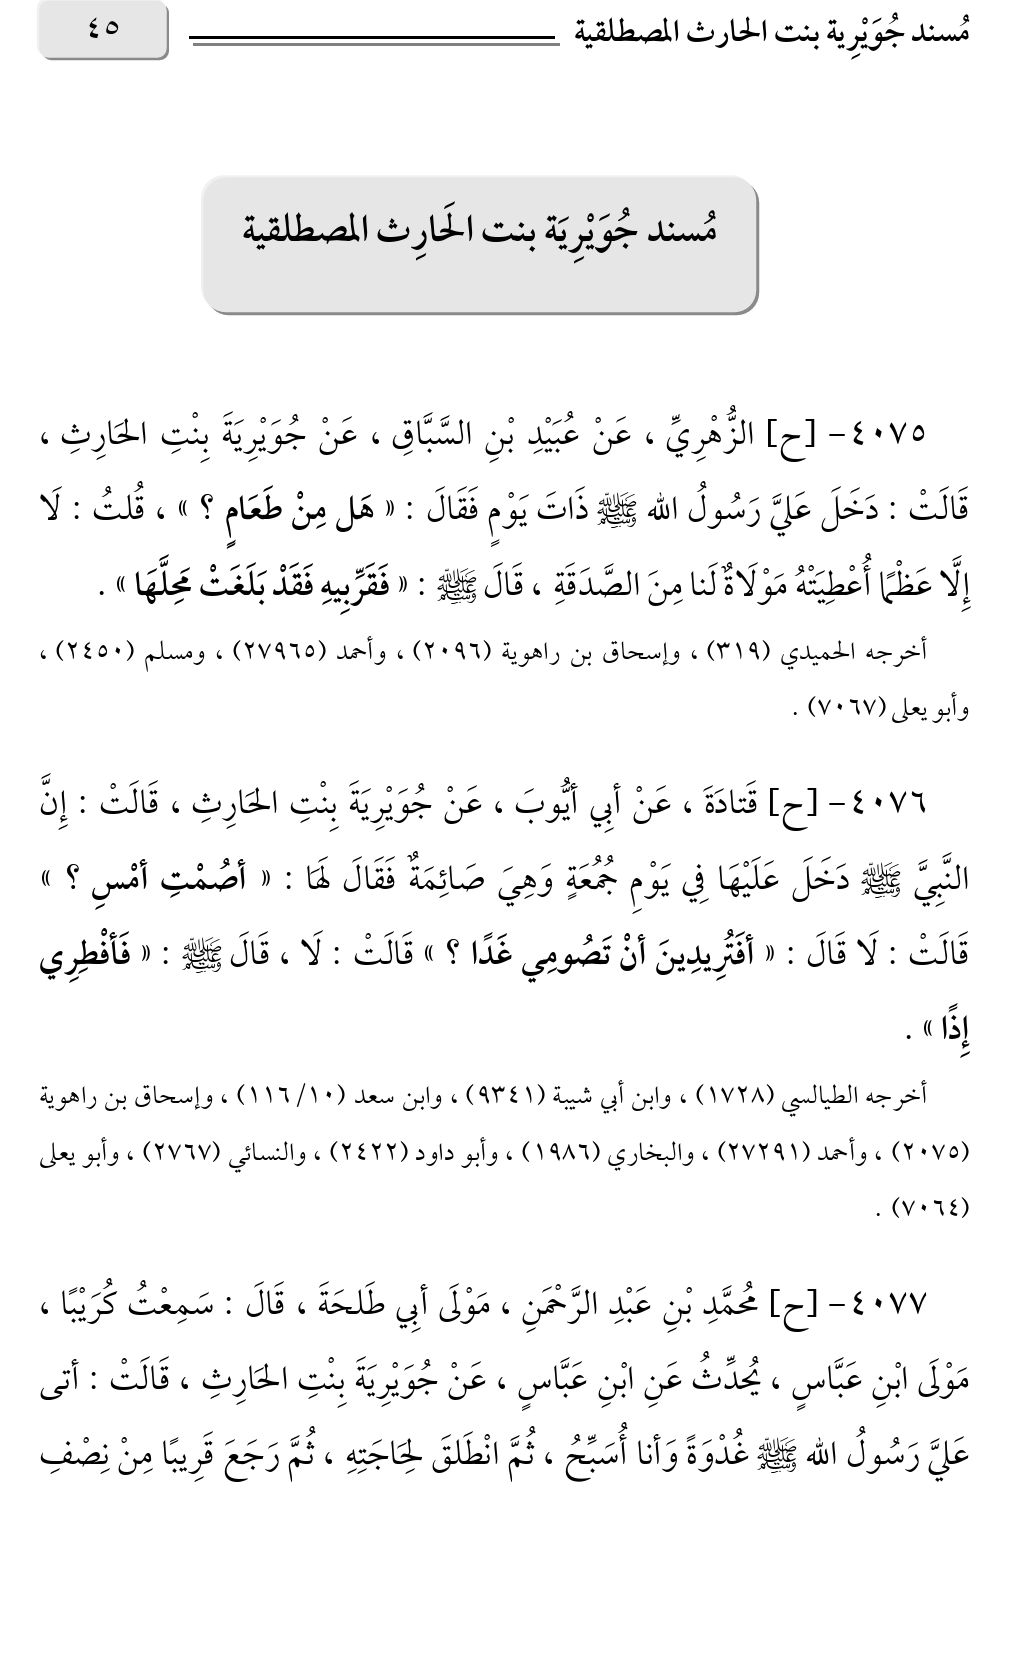 مُسند جُوَيْرِية بنت الحارث المصطلقية ٤٥
مُسند جُوَيْرِيَة بنت الحَارِث المصطلقية
٤٠٧٥- [ح] الزُّهْرِيِّ ، عَنْ عُبَيْدِ بْنِ السَّبَّاقِ ، عَنْ جُوَيْرِيَةَ بِنْتِ الحَارِثِ ،
قَالَتْ : دَخَلَ عَلَيَّ رَسُولُ الله ﷺ ذَاتَ يَوْمٍ فَقَالَ : « هَل مِنْ طَعَامٍ ؟ » ، قُلتُ : لَا
إِلَّا عَظْمًا أُعْطِيَتْهُ مَوْلَاةٌ لَنا مِنَ الصَّدَقَةِ ، قَالَ ﷺ : « فَقَرِّبِيهِ فَقَدْ بَلَغَتْ مَحِلَّهَا » .
أخرجه الحميدي (٣١٩) ، وإسحاق بن راهوية (٢٠٩٦) ، وأحمد (٢٧٩٦٥) ، ومسلم (٢٤٥٠) ،
وأبو يعلى (٧٠٦٧) .
٤٠٧٦- [ح] قَتادَةَ ، عَنْ أبِي أيُّوبَ ، عَنْ جُوَيْرِيَةَ بِنْتِ الحَارِثِ ، قَالَتْ : إِنَّ
النَّبِيَّ ﷺ دَخَلَ عَلَيْهَا فِي يَوْمِ جُمُعَةٍ وَهِيَ صَائِمَةٌ فَقَالَ لَهَا : « أصُمْتِ أمْسِ ؟ »
قَالَتْ : لَا قَالَ : « أفَتُرِيدِينَ أنْ تَصُومِي غَدًا ؟ » قَالَتْ : لَا ، قَالَ ﷺ : « فَأفْطِرِي
إِذًا » .
أخرجه الطيالسي (١٧٢٨) ، وابن أبي شيبة (٩٣٤١) ، وابن سعد (١٠/ ١١٦) ، وإسحاق بن راهوية
(٢٠٧٥) ، وأحمد (٢٧٢٩١) ، والبخاري (١٩٨٦) ، وأبو داود (٢٤٢٢) ، والنسائي (٢٧٦٧) ، وأبو يعلى
(٧٠٦٤) .
٤٠٧٧- [ح] مُحمَّدِ بْنِ عَبْدِ الرَّحْمَنِ ، مَوْلَى أبِي طَلحَةَ ، قَالَ : سَمِعْتُ كُرَيْبًا ،
مَوْلَى ابْنِ عَبَّاسٍ ، يُحدِّثُ عَنِ ابْنِ عَبَّاسٍ ، عَنْ جُوَيْرِيَةَ بِنْتِ الحَارِثِ ، قَالَتْ : أتى
عَلَيَّ رَسُولُ الله ﷺ غُدْوَةً وَأنا أُسَبِّحُ ، ثُمَّ انْطَلقَ لِحَاجَتِهِ ، ثُمَّ رَجَعَ قَرِيبًا مِنْ نِصْفِ